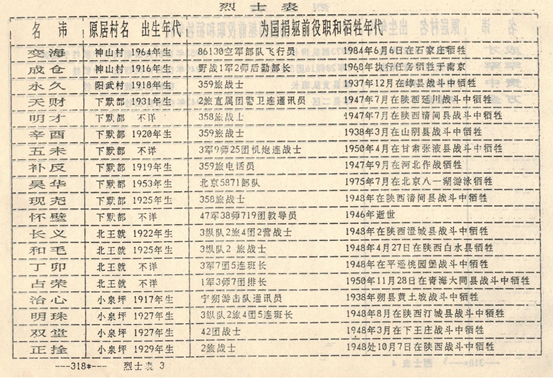 烈士表
名 讳 原居村名 出生年代 为国捐躯前役职和牺牲年代
变海 神山村 1964年生 86130空军部队飞行员 1984年6月6日在石家庄牺牲
成仓 神山村 1916年生 野战1军2师后勤部长 1968年执行任务牺牲于南京
永久 阳武村 1918年生 359旅战士 1937年12月在崞县战斗中牺牲
天财 下默都 1931年生 2旅直属团警卫连通讯员 1947年7月在陕西延川战斗中牺牲
明才 下默都 不详 358旅战士 1947年7月在陕西清涧县战斗中牺牲
辛酉 下默都 1920年生 359旅战士 1938年3月在山阴县战斗中牺牲
五未 下默都 不详 3军9师25团机炮连战士 1950年4月在甘肃张液县战斗中牺牲
补反 下默都 1919年生 359旅电话员 1947年9月在河北作战牺牲
昊华 下默都 1953年生 北京5871部队 1975年7月在北京八一湖游泳牺牲
现尧 下默都 1925年生 358旅战士 1948年在陕西清涧县战斗中牺牲
怀壁 下默都 不详 47军38师719团教导员 1946年逝世
长义 北王就 1922年生 3纵队2旅4团2营战士 1948年在陕西澄城县战斗中牺牲
和毛 北王就 1925年生 3纵队2旅战士 1948年4月27日在陕西白水县牺牲
丁卯 北王就 不详 3军7团5连班长 1948年在平遥桃园堡战斗中牺牲
占荣 北王就 不详 1军3师7团排长 1950年11月28日在青海大同县战斗中牺牲
治心 小泉坪 1917年生 宁朔游击队通讯员 1938年朔县黄土坡战斗中牺牲
明珠 小泉坪 1927年生 3纵队2旅4团5连班长 1948年8月在陕西汀城县战斗中牺牲
双堂 小泉坪 1927年生 42团战士 1948年3月在下王庄战斗中牺牲
正拴 小泉坪 1929年生 2旅战士 1948处10月7日在陕西战斗中牺牲
---318*--- 烈士表 3